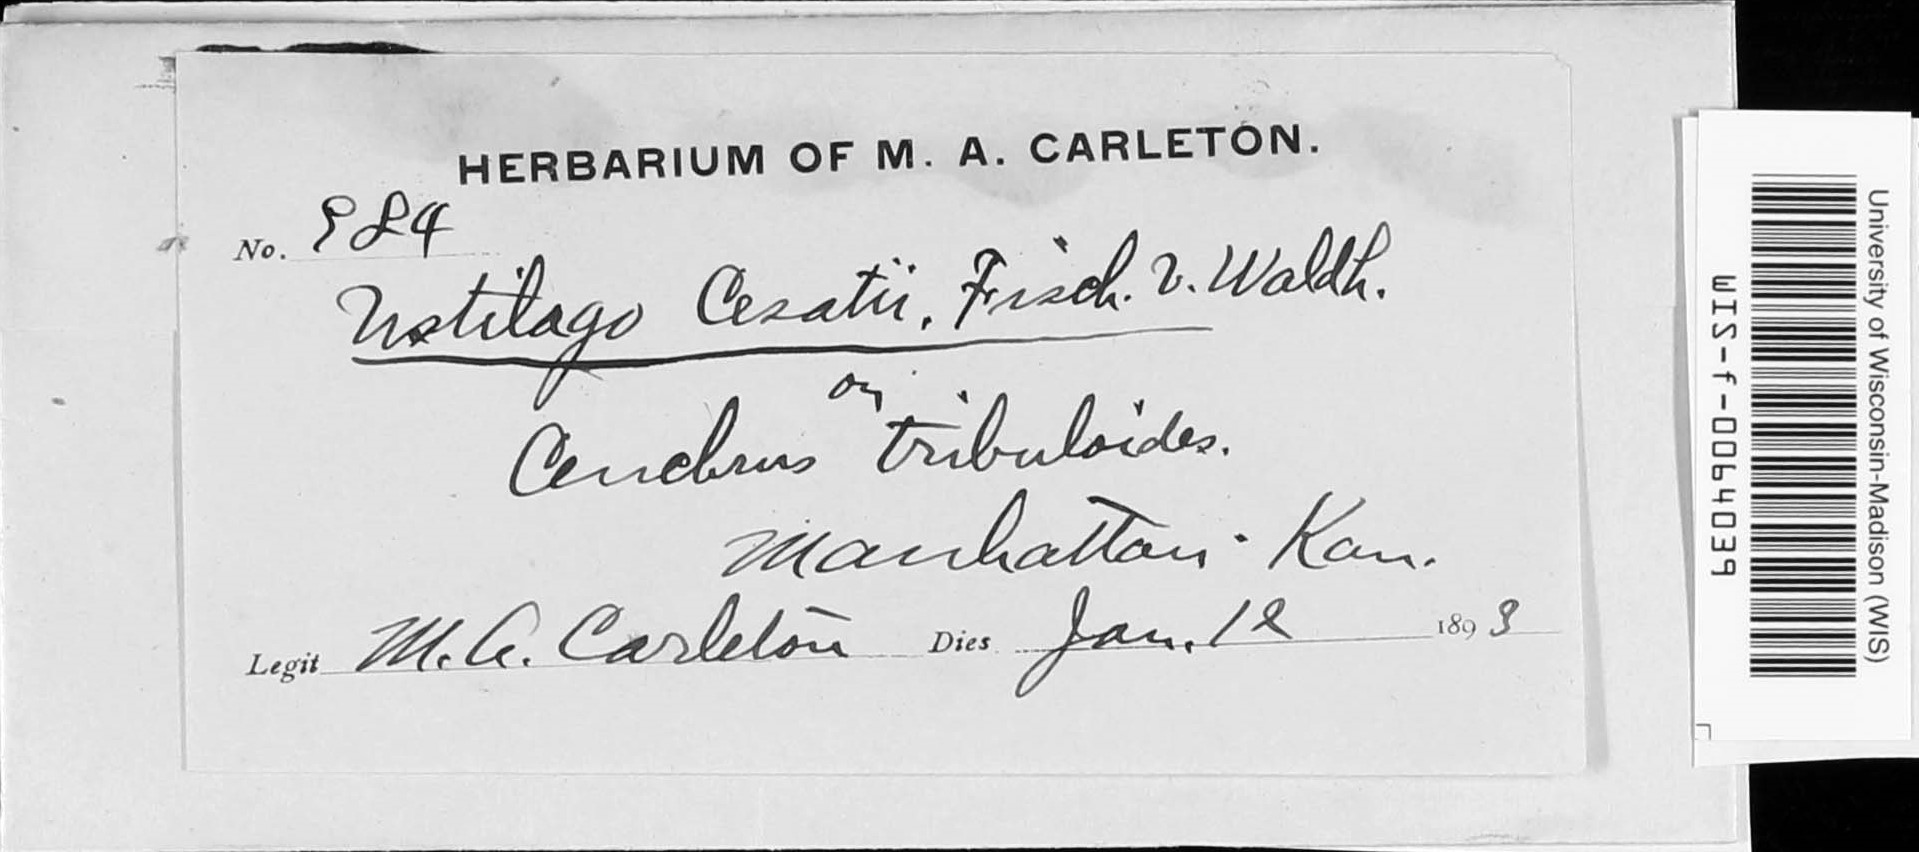 HERBARIUM OF M. A. CARLETON.
No. 984
Ustilago Cesatii, Frisch. v. Waldh.
on
Cenchrus tribuloides.
Manhattan - Kan.
Legit M. A. Carleton Dies Jan. 12 1893
University of Wisconsin-Madison (WIS)
WIS-f-0064039